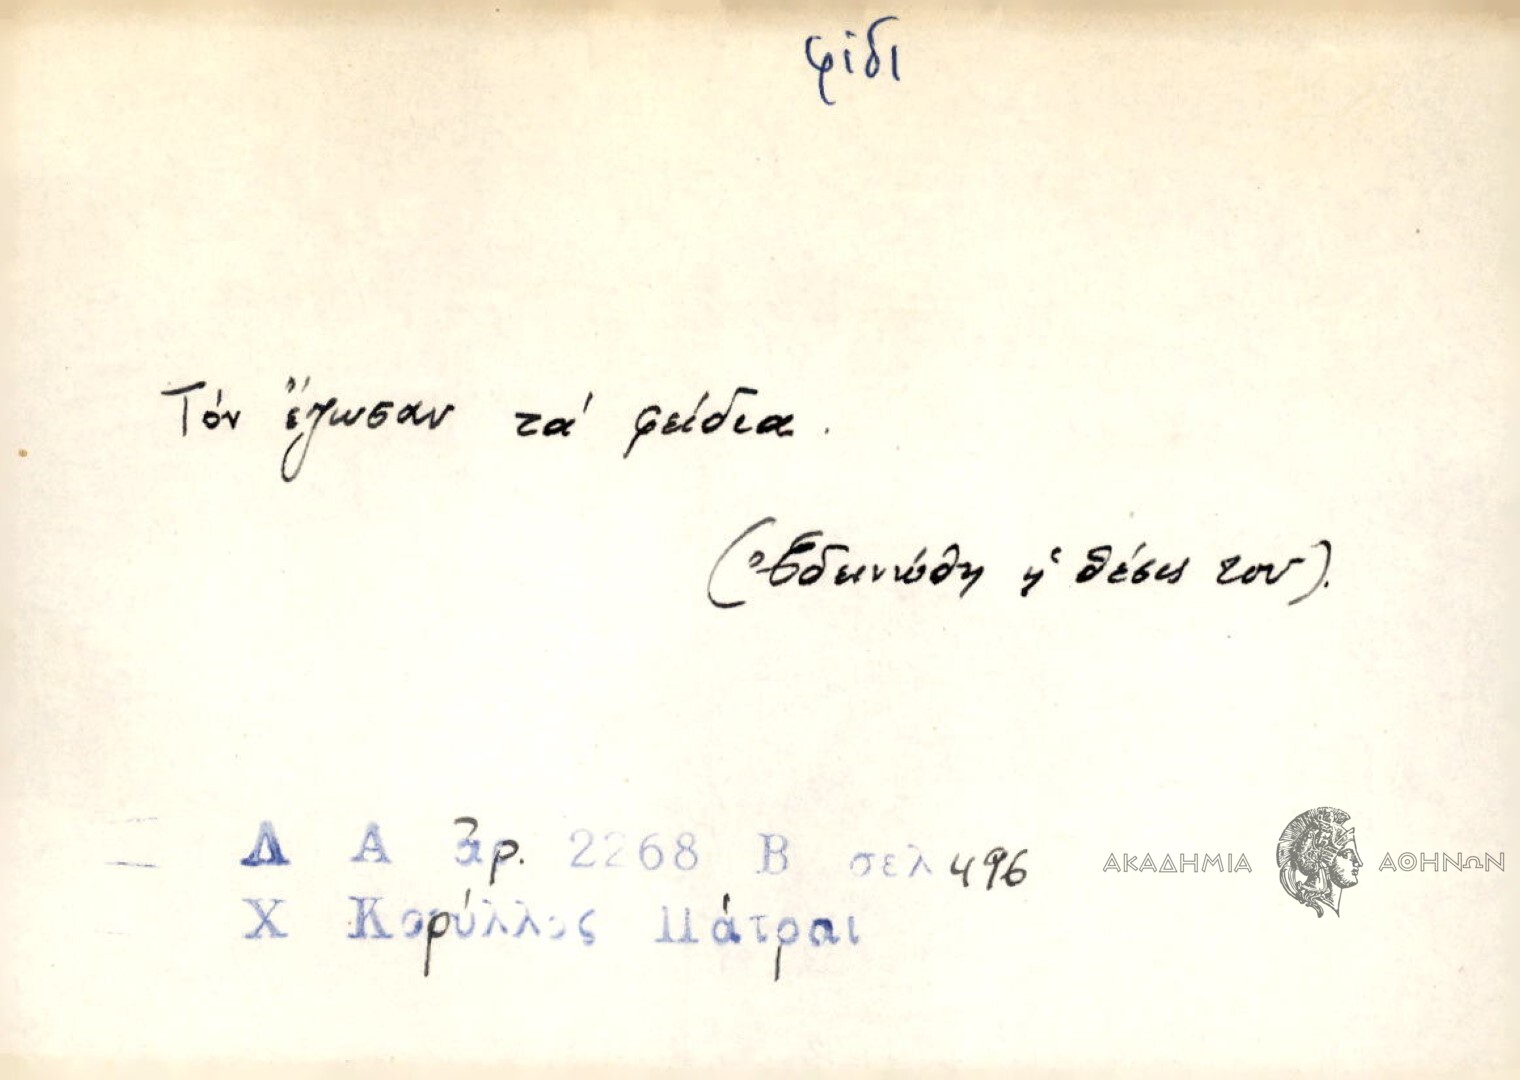 φίδι
Τόν ἔζωσαν τά φείδια.
(Ἐδεινώθη ἡ θέσις του).
Δ Α 3ρ. 2268 Β σελ 496
Χ Κορύλλος Πάτραι
ΑΚΑΔΗΜΙΑ ΑΘΗΝΩΝ